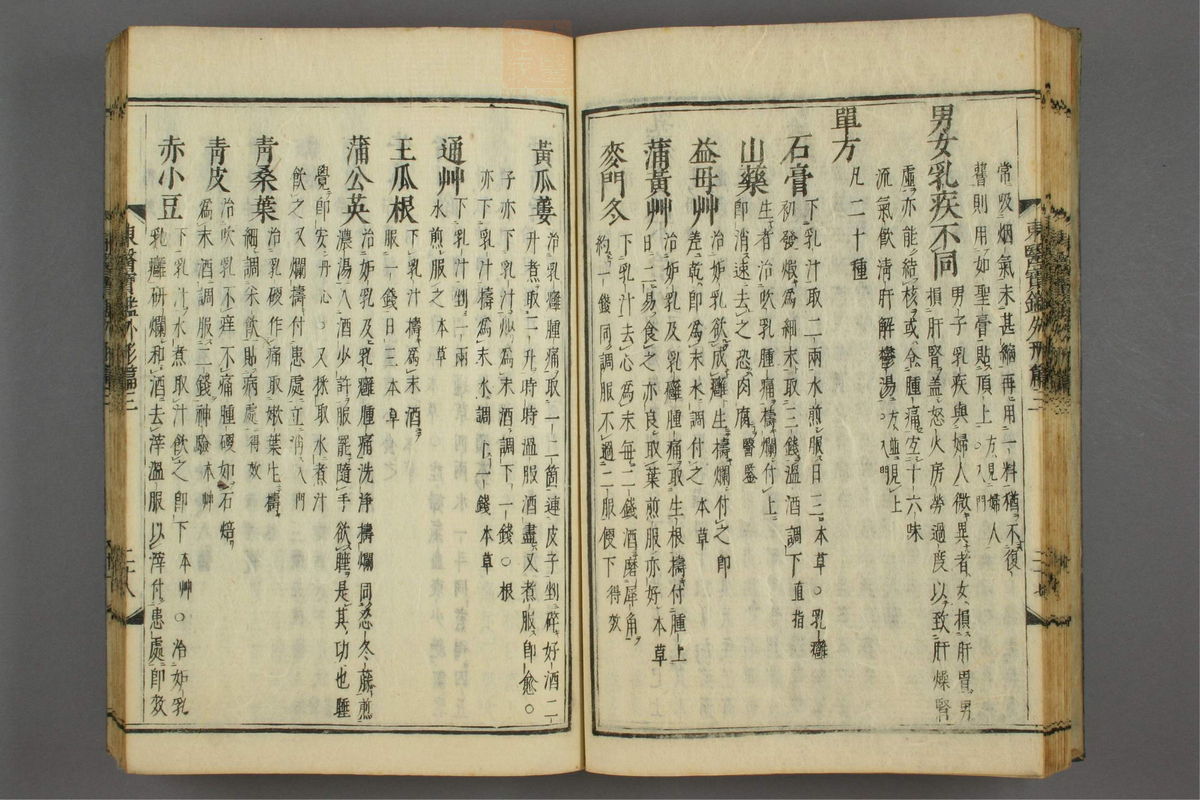 常吸烟氣未甚縮再用一料猶不復
聾則用如聖膏貼頂上 方見婦人○入門
男女乳疾不同 男子乳疾與婦人微異者女損肝胃男
損肝腎盖怒火房勞過度以致肝燥腎
虛亦能結核或金腫痛宜十六味
流氣飮淸肝解鬱湯 方並見上○入門
單方 凡二十種
石膏 下乳汁取二兩水煎服日三本草○乳癰
初發煆爲細末取三錢溫酒調下直指
山藥 生者治吹乳腫痛擣爛付上
卽消速去之恐肉腐 醫鑒
益母艸 治妬乳欲成癰生擣爛付之卽
差乾卽爲末水調付之 本草
蒲黃艸 治妬乳及乳癰腫痛取生根擣付腫上
日二易食之亦良取葉煎服亦好 本草
麥門冬 下乳汁去心爲末每二錢酒磨犀角
約一錢同調服不過二服便下得效
黃瓜蔞 治乳癰腫痛取一二箇連皮子剉碎好酒二
升煮取一升時時溫服酒盡又煮服卽愈○
子亦下乳汁炒爲末酒調下一錢○根
亦下乳汁擣爲末水調上一錢 本草
通艸 下乳汁剉一兩
水煎服之 本草
王瓜根 下乳汁擣爲末酒
服一錢日三 本草
蒲公英 治妬乳及乳癰腫痛洗淨擣爛同忍冬藤煎
濃湯入酒少許服罷隨手欲睡是其功也睡
覺卽安 丹心○又掀取水煮汁
飮之又爛擣付患處立消 入門
靑桑葉 治乳硬作痛取嫩葉生擣
細調米飮貼病處 得效
靑皮 治吹乳不痒不痛腫硬如石焙
爲末酒調服二錢神驗 本艸
赤小豆 下乳汁水煮取汁飮之卽下 本艸○治妬乳
乳癰研爛和酒去滓溫服以滓付患處卽效
東醫寶鑑外形篇三 二十七
東醫寶鑑外形篇三 二十八